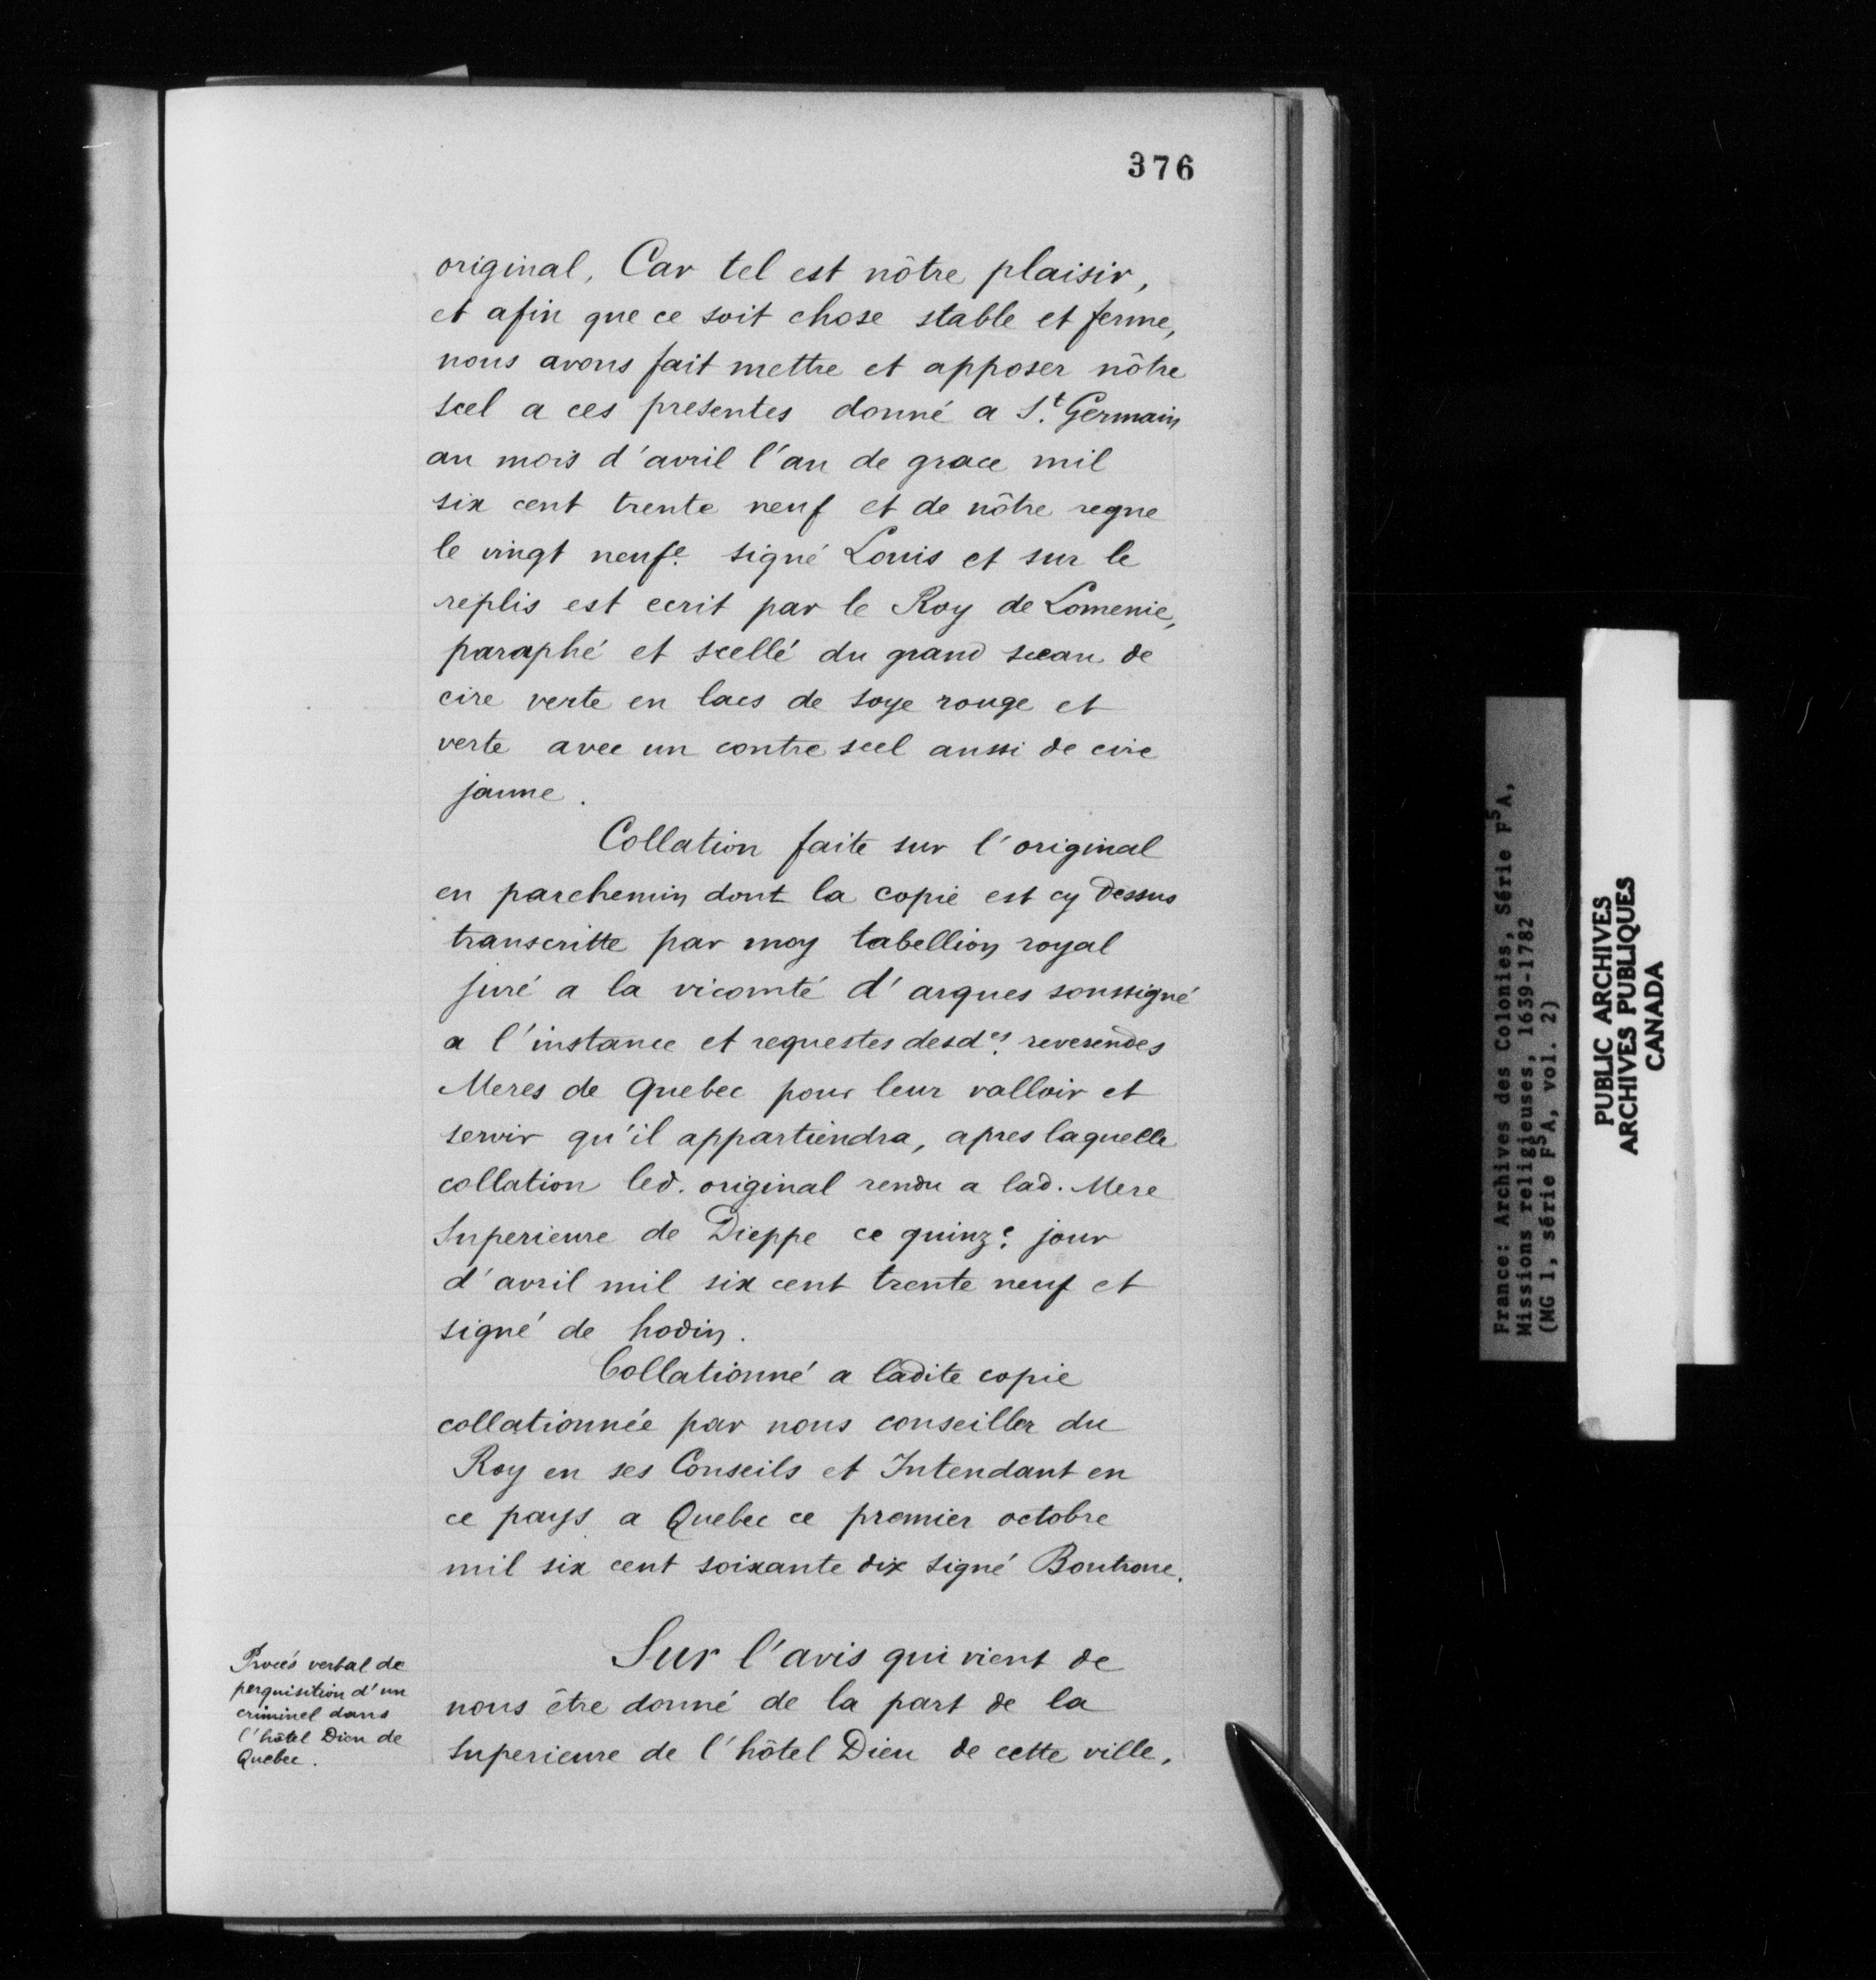 376
original, Car tel est nôtre plaisir,
et afin que ce soit chose stable et ferme,
nous avons fait mettre et apposer nôtre
scel a ces presentes donné a St. Germain
au mois d'avril l'an de grace mil
six cent trente neuf et de nôtre regne
le vingt neufe. signé Louis et sur le
replis est ecrit par le Roy de Lomenie,
paraphé et scellé du grand sceau de
cire verte en lacs de soye rouge et
verte avec un contre scel aussi de cire
jaune.
Collation faite sur l'original
en parchemin dont la copie est cy dessus
transcritte par moy tabellion royal
juré a la vicomté d'arques soussigné
a l'instance et requestes desdes. reverendes
Meres de Quebec pour leur valloir et
servir qu'il appartiendra, apres laquelle
collation led. original rendu a lad. Mere
Superieure de Dieppe ce quinze. jour
d'avril mil six cent trente neuf et
signé de hodin.
Collationné a ladite copie
collationnée par nous conseiller du
Roy en ses Conseils et Intendant en
ce pays a Quebec ce premier octobre
mil six cent soixante dix signé Boutroue.
Procés verbal de
perquisition d'un
criminel dans
l'hôtel Dieu de
Quebec.
Sur l'avis qui vient de
nous être donné de la part de la
Superieure de l'hôtel Dieu de cette ville,
France: Archives des Colonies, Série F5A,
Missions religieuses, 1639-1782
(MG 1, série F5A, vol. 2)
PUBLIC ARCHIVES
ARCHIVES PUBLIQUES
CANADA